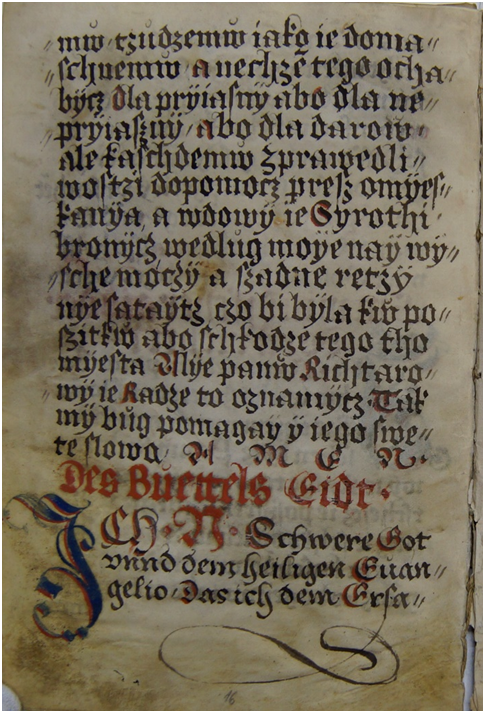 mw̆ czudzemw̆ iako ie doma〃
schnemw̆ a nechzē tego ocha〃
bycz dla pryiasnÿ abo dla ne〃
pryiaszny abo dla darow
ale kaschdemw̆ zprawedli〃
wostzi dopomocz presz omÿes〃
kanÿa, a wdowÿ ie Syrothi
bronÿcz wedlŭg moÿe naÿ wÿ〃
sche moczÿ a szadne retzÿ
nÿe sataÿtz czo bi bÿla kw̆ po〃
szitkw̆ abo schkodze tego tho
mÿesta Alÿe panw̆ Richtaro〃
wÿ ie Radze to oznamÿtz Tak
mÿ bŭg pomagaÿ ÿ iego swe〃
te slowa, A M E N.
Des Buettels Eidt.
ICH. N. Schwere Got
vnnd dem heiligen Euan〃
gelio, Das ich dem Ersa〃
16